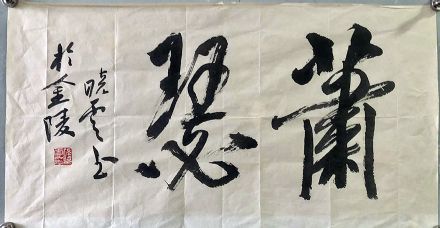 蕭瑟
曉雲书
於金陵